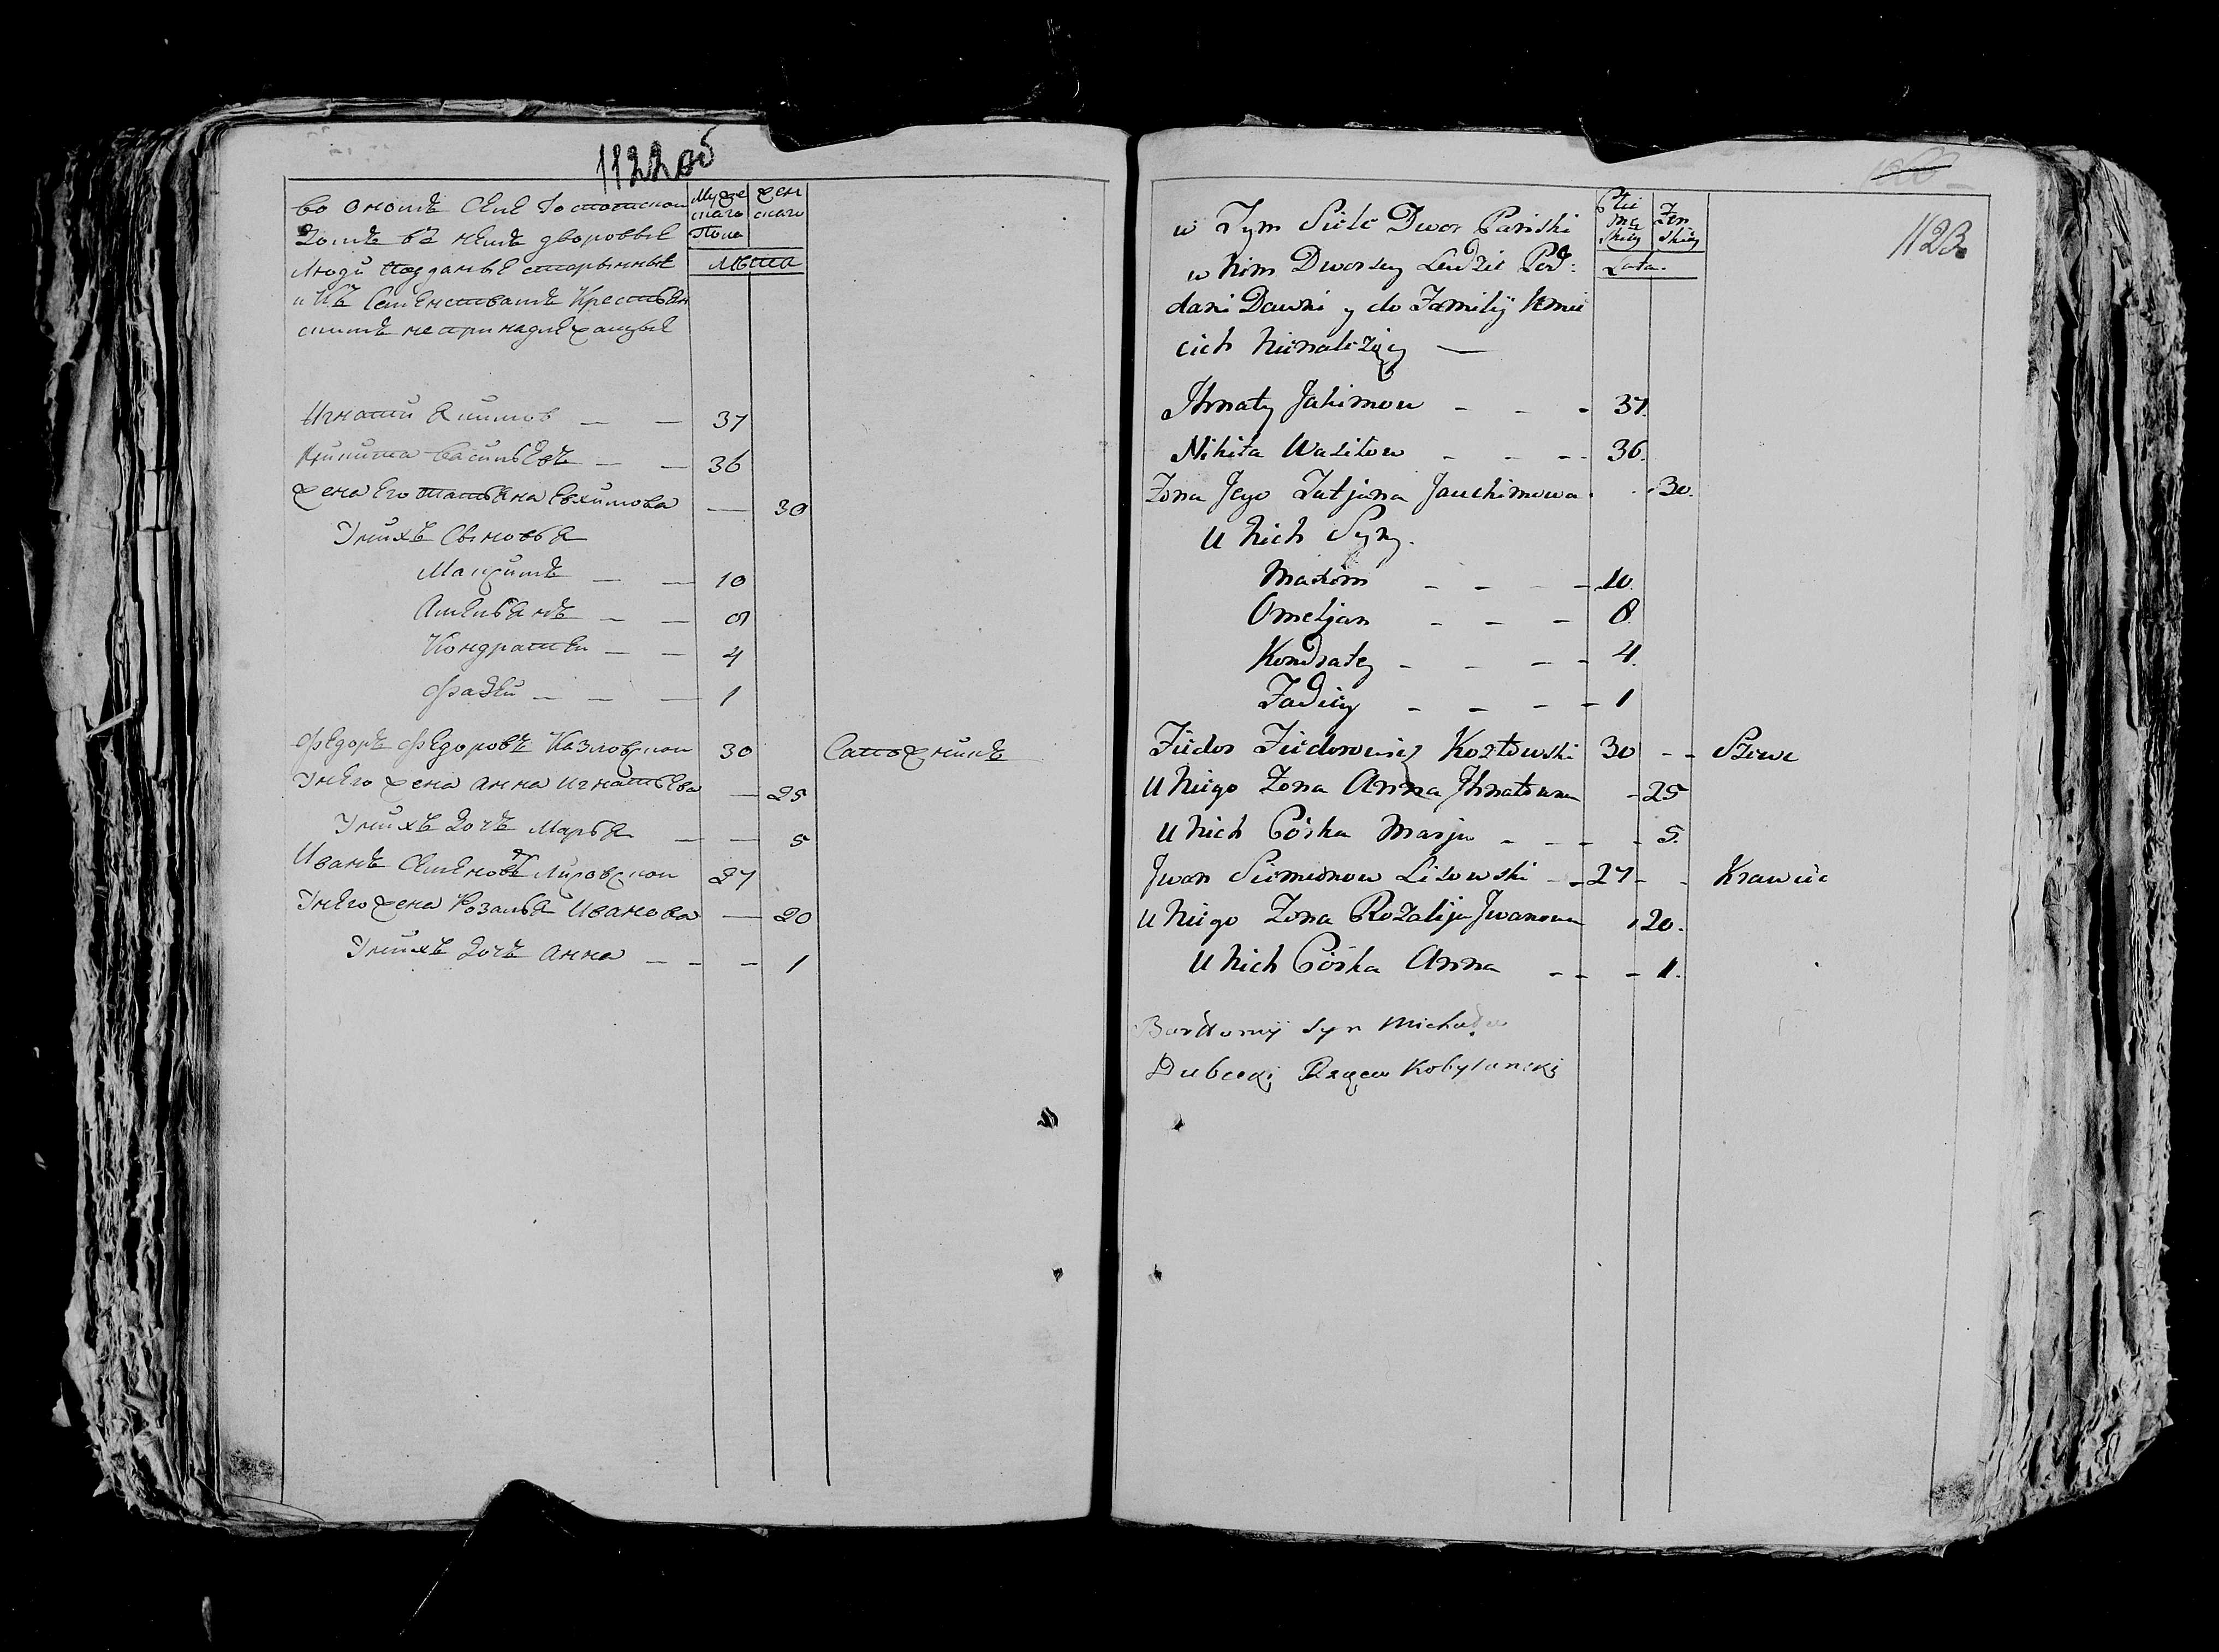 1122 об
во ономъ селе Господской
Домъ въ немъ дворовые
Люди Подданые старынные
и Къ Семенствамъ Крестьян
скимъ не принадлежащые
Муже
скаго
жен
скаго
Пола
Лѣта
Игнатий Якимов — — 37
Никита Васильевъ — — 36
жена Его Татьяна Евхимова — 30
У нихъ Сыновья
Максимъ — — 10
Амельянъ — — 8
Кондратей — — 4
Фадей — — — 1
Федоръ Федоровъ Казловской 30 Сапожникъ
У него жена Анна Игнатьева — 25
У нихъ Дочь Марья — — 5
Иванъ Семеновъ Лисовской 27
У него жена Розалья Иванова — 20
У нихъ Дочь Анна — — — 1
1123
w Tym Siele Dwor Pański
w Nim Dworscy Ludzie Pod:
dani Dawni y do Familij Kmie
cich Nienależący —
Płci
Mę
skiey
Żeń
skiey
Lata.
Ihnaty Jakimow - - - 37.
Nikita Wasilow - - - - 36.
Żona Jego Tatjana Jauchimowa - - 30.
U Nich Syny.
Maxim - - - - 10.
Omeljan - - - 8
Kondratey - - - - 4.
Fadiey - - - - 1
Fiedor Fiedorowicz Kozłowski 30 - - Szewc
U Niego Żona Anna Ihnatowna - 25
U Nich Córka Marja - - - - 5.
Jwan Siemionow Lisowski - - 27 - - Krawiec
U Niego Żona Rozalija Jwanowna 20.
U Nich Córka Anna - - - 1.
Bartłomij syn Michała
Dubecki Rządca Kobylanski